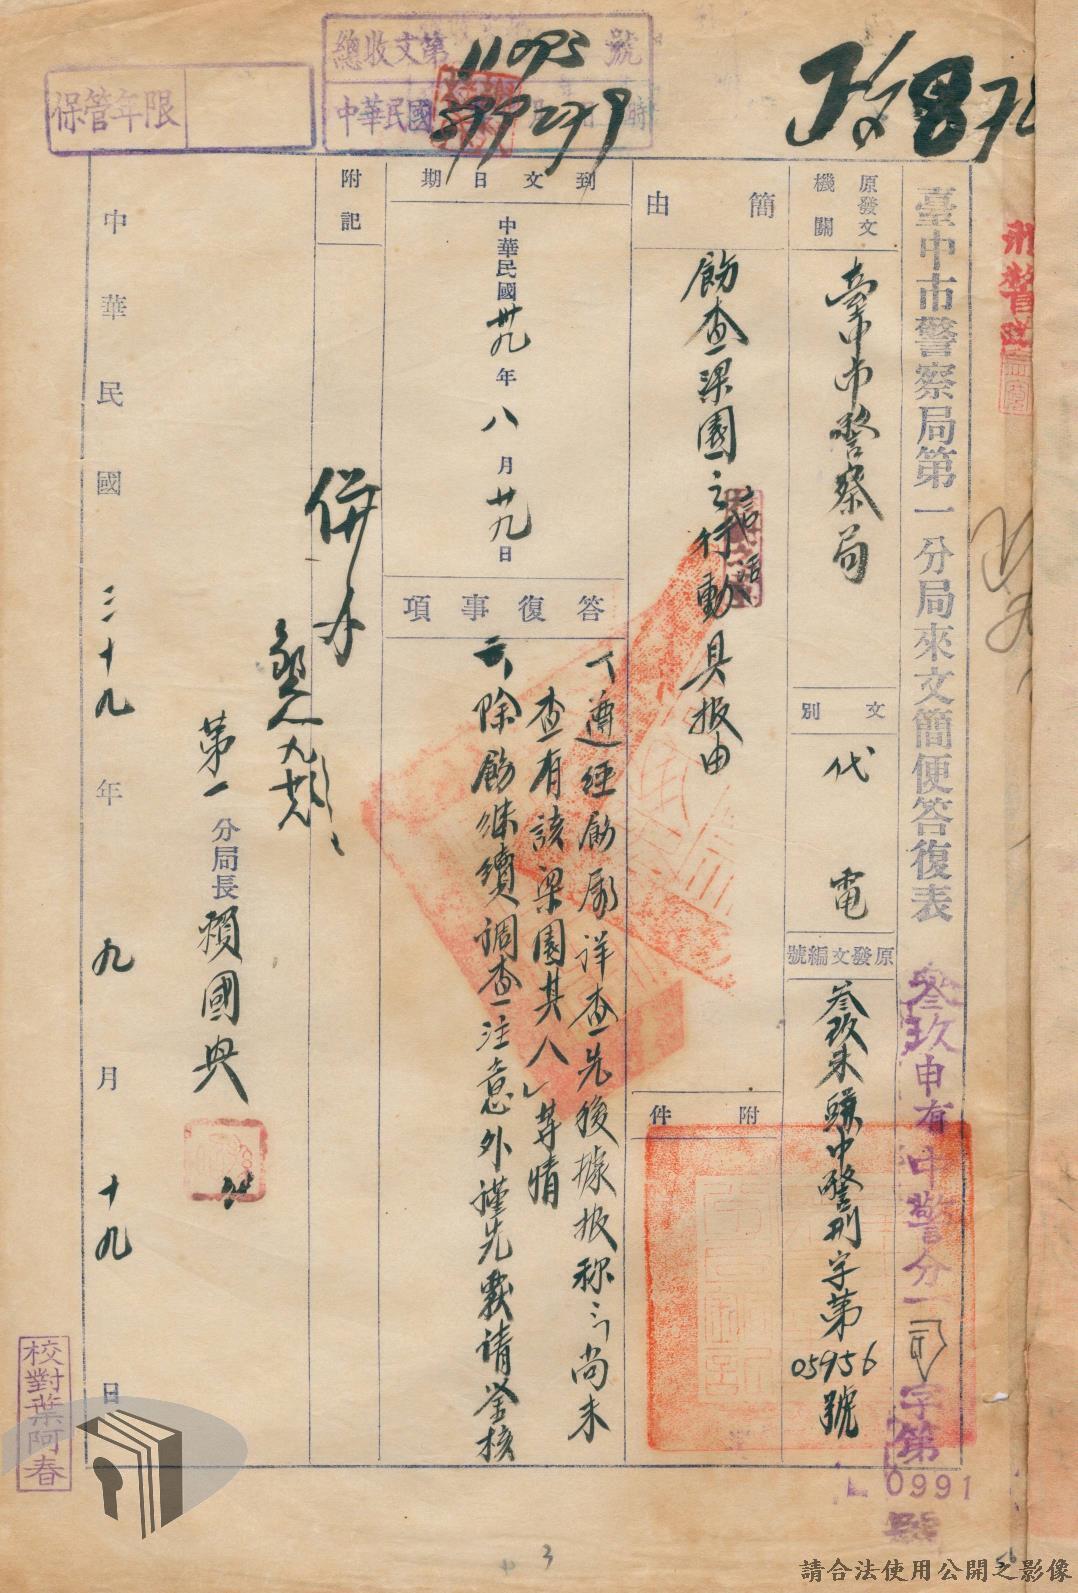 總收文第11095號
中華民國399279時
保管年限
臺中市警察局第一分局來文簡便答復表
叁玖申有中警分一司字第
0991
號
原發文機關
臺中市警察局
文別
代電
原發文編號
叁玖未中警刑字第05956號
簡由
飭查梁園之行動具报由
附件
到文日期
中華民國卅九年八月廿九日
答復事項
一、遵經飭屬详查先後據报称:「尚未
查有該梁園其人」等情
二、除飭继續調查注意外謹先覆请鉴核
附記
併存
九廿
第一分局長賴國興
中華民國三十九年九月十九日
校對葉阿春
3
56
請合法使用公開之影像